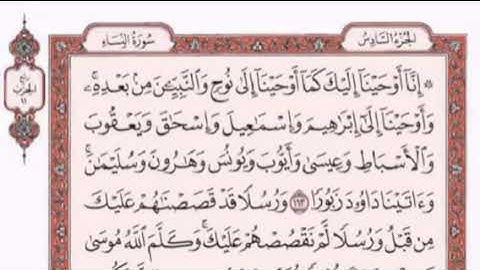 الجزء السادس
سورة النساء
ربع
الحزب
١١
۞ إِنَّا أَوْحَيْنَا إِلَيْكَ كَمَا أَوْحَيْنَا إِلَىٰ نُوحٍ وَالنَّبِيِّـۧنَ مِنۢ بَعْدِهِۦۚ
وَأَوْحَيْنَا إِلَىٰ إِبْرَٰهِيمَ وَإِسْمَٰعِيلَ وَإِسْحَٰقَ وَيَعْقُوبَ
وَالْأَسْبَاطِ وَعِيسَىٰ وَأَيُّوبَ وَيُونُسَ وَهَٰرُونَ وَسُلَيْمَٰنَۚ
وَءَاتَيْنَا دَاوُۥدَ زَبُورًا ١٦٣ وَرُسُلًا قَدْ قَصَصْنَٰهُمْ عَلَيْكَ
مِن قَبْلُ وَرُسُلًا لَّمْ نَقْصُصْهُمْ عَلَيْكَۚ وَكَلَّمَ اللَّهُ مُوسَىٰ